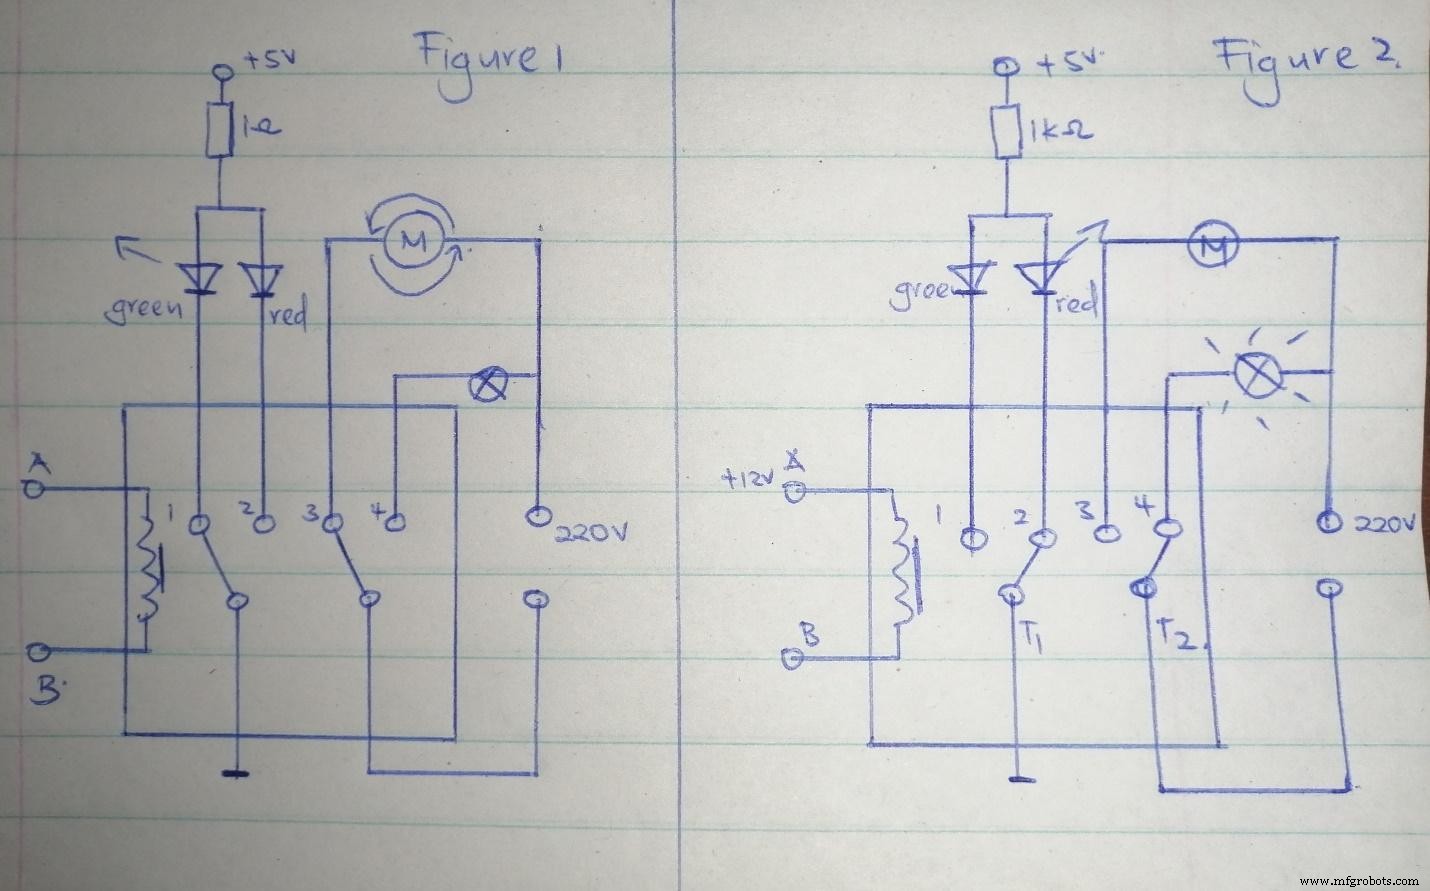 Figure 1
+5V
1Ω
green
red
M
A
1 2 3 4
220V
B
Figure 2.
+5V
1kΩ
green
red
M
+12V A
1 2 3 4
220V
B
T1
T2
www.mfgrobots.com